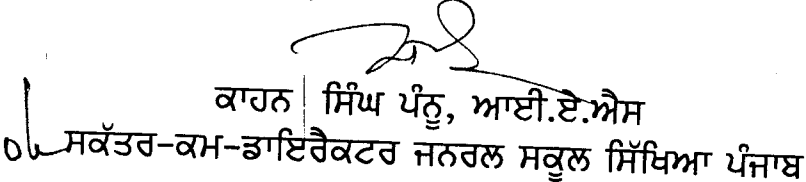 ਕਾਹਨ ਸਿੰਘ ਪੰਨੂ, ਆਈ.ਏ.ਐਸ
ਸਕੱਤਰ-ਕਮ-ਡਾਇਰੈਕਟਰ ਜਨਰਲ ਸਕੂਲ ਸਿੱਖਿਆ ਪੰਜਾਬ